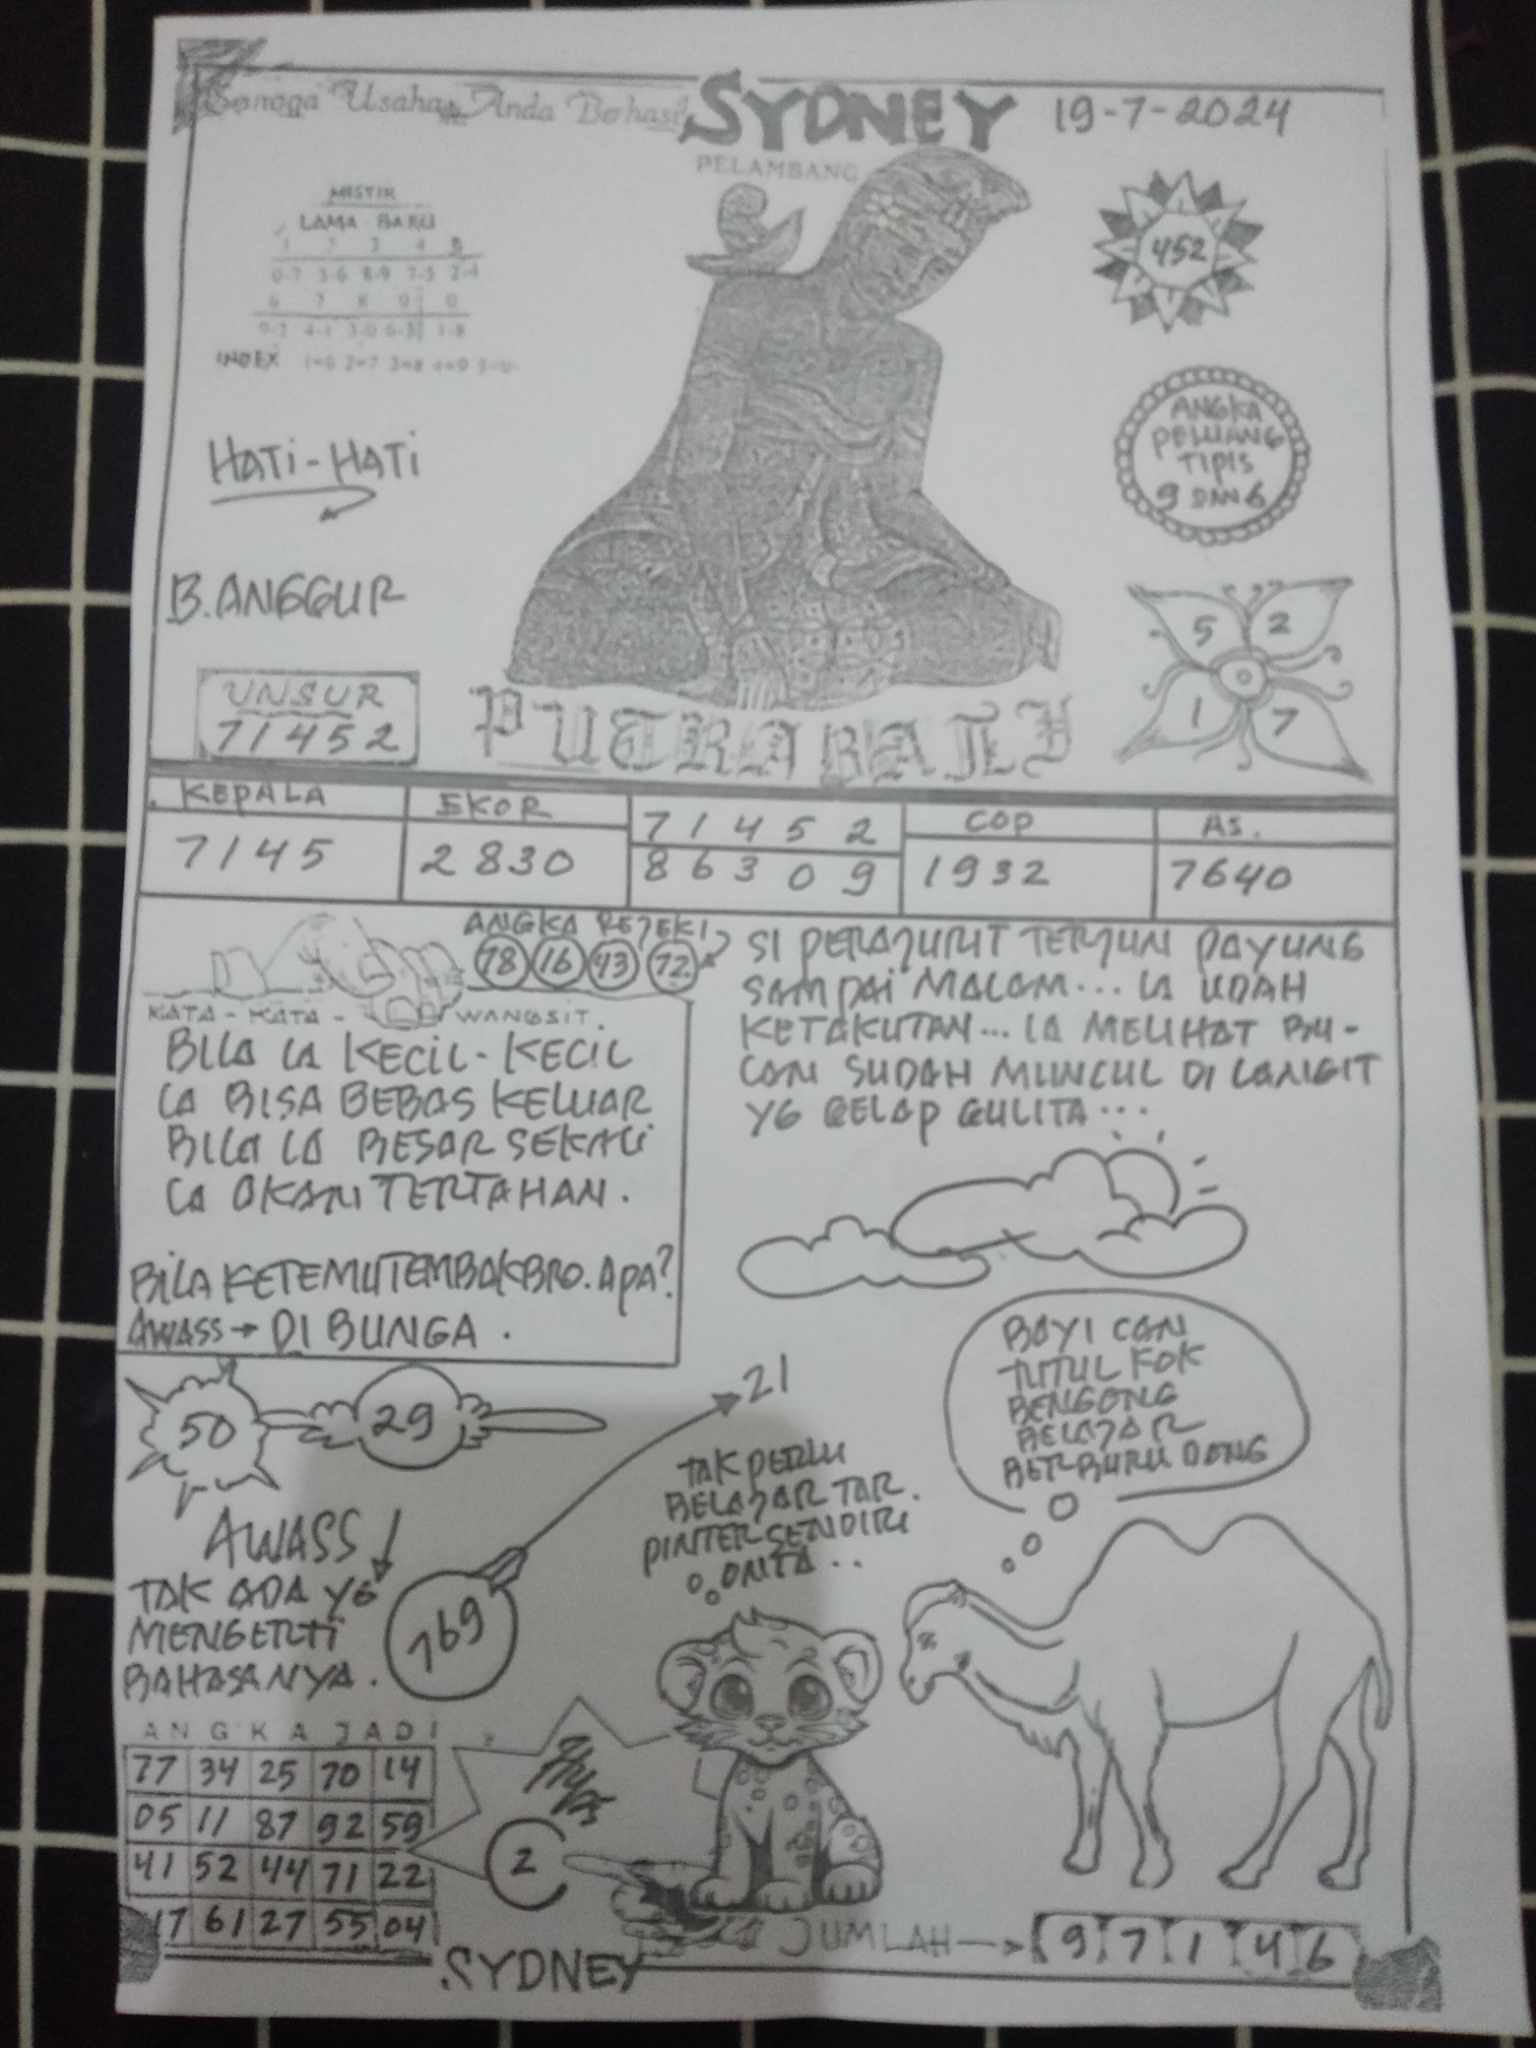 Semoga Usaha Anda Berhasil
SYDNEY
19-7-2024
PELAMBANG
MISTIK
LAMA BARU
1 2 3 4 5
0-7 5-6 8-9 7-5 2-4
6 7 8 9 0
9-2 4-1 3-0 6-3 1-8
INDEX 1=6 2=7 3=8 4=9 5=0
452
HATI-HATI
ANGKA
PELUANG
TIPIS
9 DAN 6
B.ANGGUR
5 2
1 7
UNSUR
71452
PUTRA BALI
KEPALA
7145
EKOR
2830
7 1 4 5 2
8 6 3 0 9
COP
1932
AS.
7640
ANGKA REJEKI
78 16 43 72
KATA-KATA- WANGSIT.
BILA IA KECIL-KECIL
IA BISA BEBAS KELUAR
BILA IA BESAR SEKALI
IA AKAN TERTAHAN.
BILA KETEMU TEMBAK BRO. APA?
AWASS → DI BUNGA.
SI PERAJURIT TERJUN PAYUNG
SAMPAI MALAM... IA UDAH
KETAKUTAN... IA MELIHAT BU-
LAN SUDAH MUNCUL DI LANGIT
YG GELAP GULITA...
50
29
21
AWASS
TAK ADA YG
MENGERTI
BAHASANYA.
769
TAK PERLU
BELAJAR TAR.
PINTER SENDIRI
ONTA..
BAYI CAN
TUTUL KOK
BENGONG
BELAJAR
BERBURU DONG
ANGKA JADI
77 34 25 70 14
05 11 87 92 59
41 52 44 71 22
17 61 27 55 04
2
JUMLAH → 9 7 1 4 6
SYDNEY